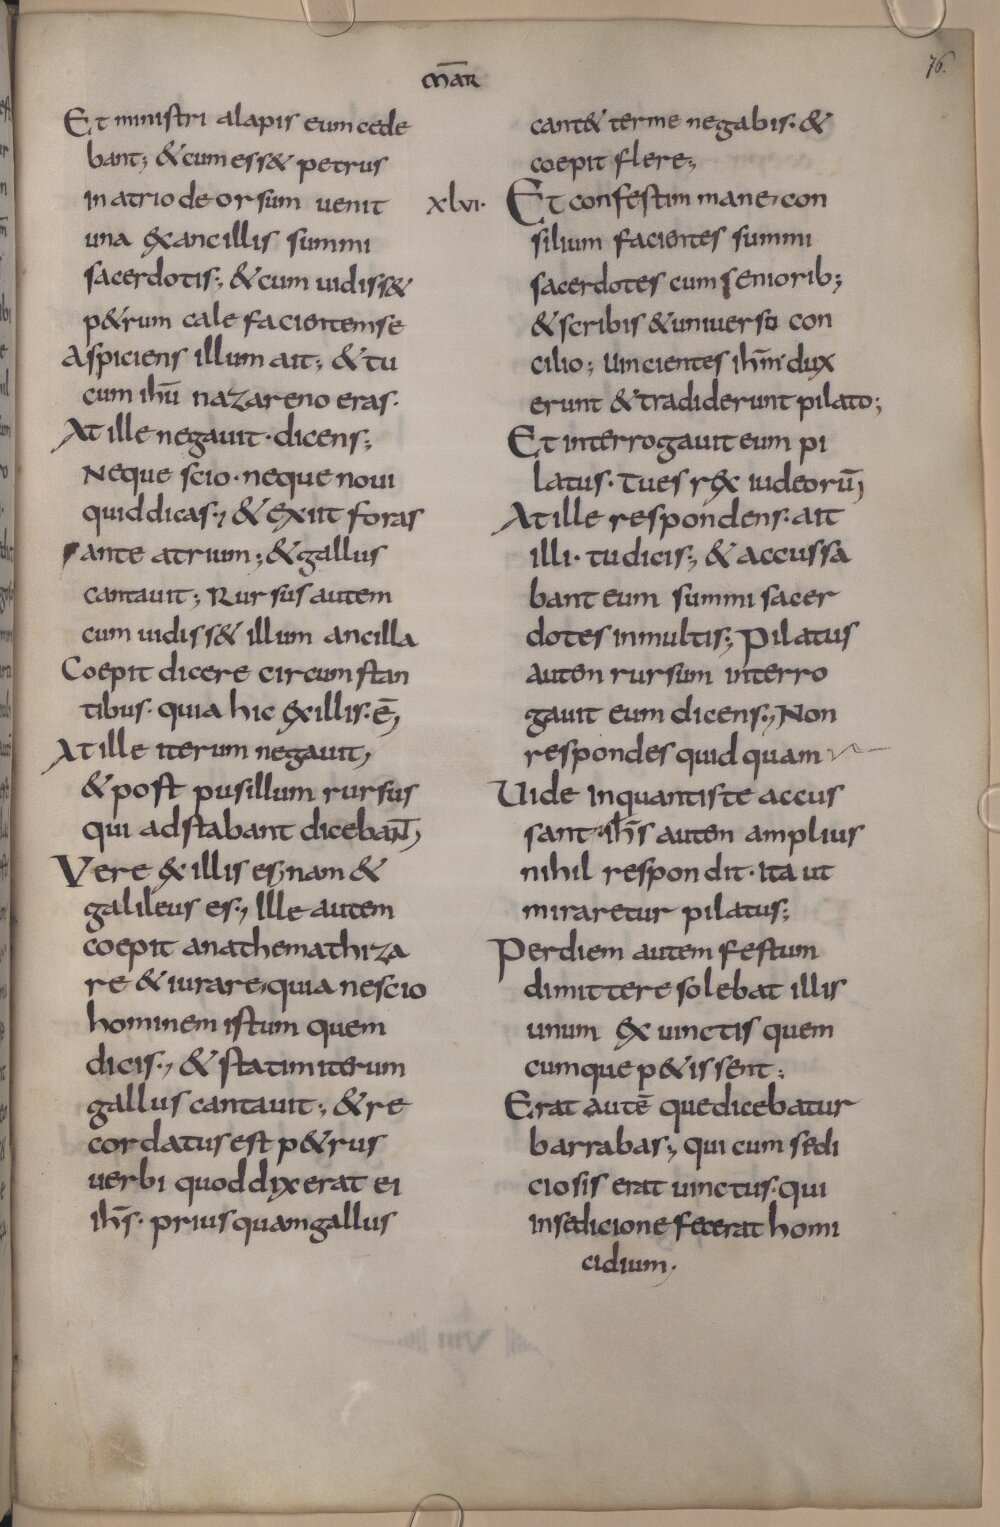 mār
76.
Et ministri alapis eum cede
bant; & cum ess& petrus
in atrio deorsum uenit
una ex ancillis summi
sacerdotis; & cum uidiss&
p&rum calefacientem se
Aspiciens illum ait; & tu
cum ihū nazareno eras·
At ille negauit· dicens;
Neque scio· neque noui
quid dicas; & exiit foras
ante atrium; & gallus
cantauit; Rursus autem
cum uidiss& illum ancilla
Coepit dicere circumstan
tibus· quia hic ex illis· ē;
At ille iterum negauit;
& post pusillum rursus
qui adstabant dicebant;
Vere ex illis es; nam &
galileus es; Ille autem
coepit anathemathiza
re & iurare, quia nescio
hominem istum quem
dicis; & statim iterum
gallus cantauit; & re
cordatus est p&rus
uerbi quod dixerat ei
ihs̄· prius quam gallus
cant& ter me negabis· &
coepit flere;
xlvi·
Et confestim mane, con
silium facientes summi
sacerdotes cum seniorib;
& scribis & uniuerso con
cilio; uincientes ihm̄ dux
erunt & tradiderunt pilato;
Et interrogauit eum pi
latus· Tu es rex iudeorū;
At ille respondens· ait
illi· tu dicis; & accussa
bant eum summi sacer
dotes in multis; Pilatus
autem rursum interro
gauit eum dicens; Non
respondes quid quam
Uide in quantis te accus
sant· ihs̄ autem amplius
nihil respondit· ita ut
miraretur pilatus;
Per diem autem festum
dimittere solebat illis
unum ex uinctis quem
cumque p&issent;
Erat autē que dicebatur
barrabas; qui cum sedi
ciosis erat uinctus· qui
in sedicione fecerat homi
cidium;